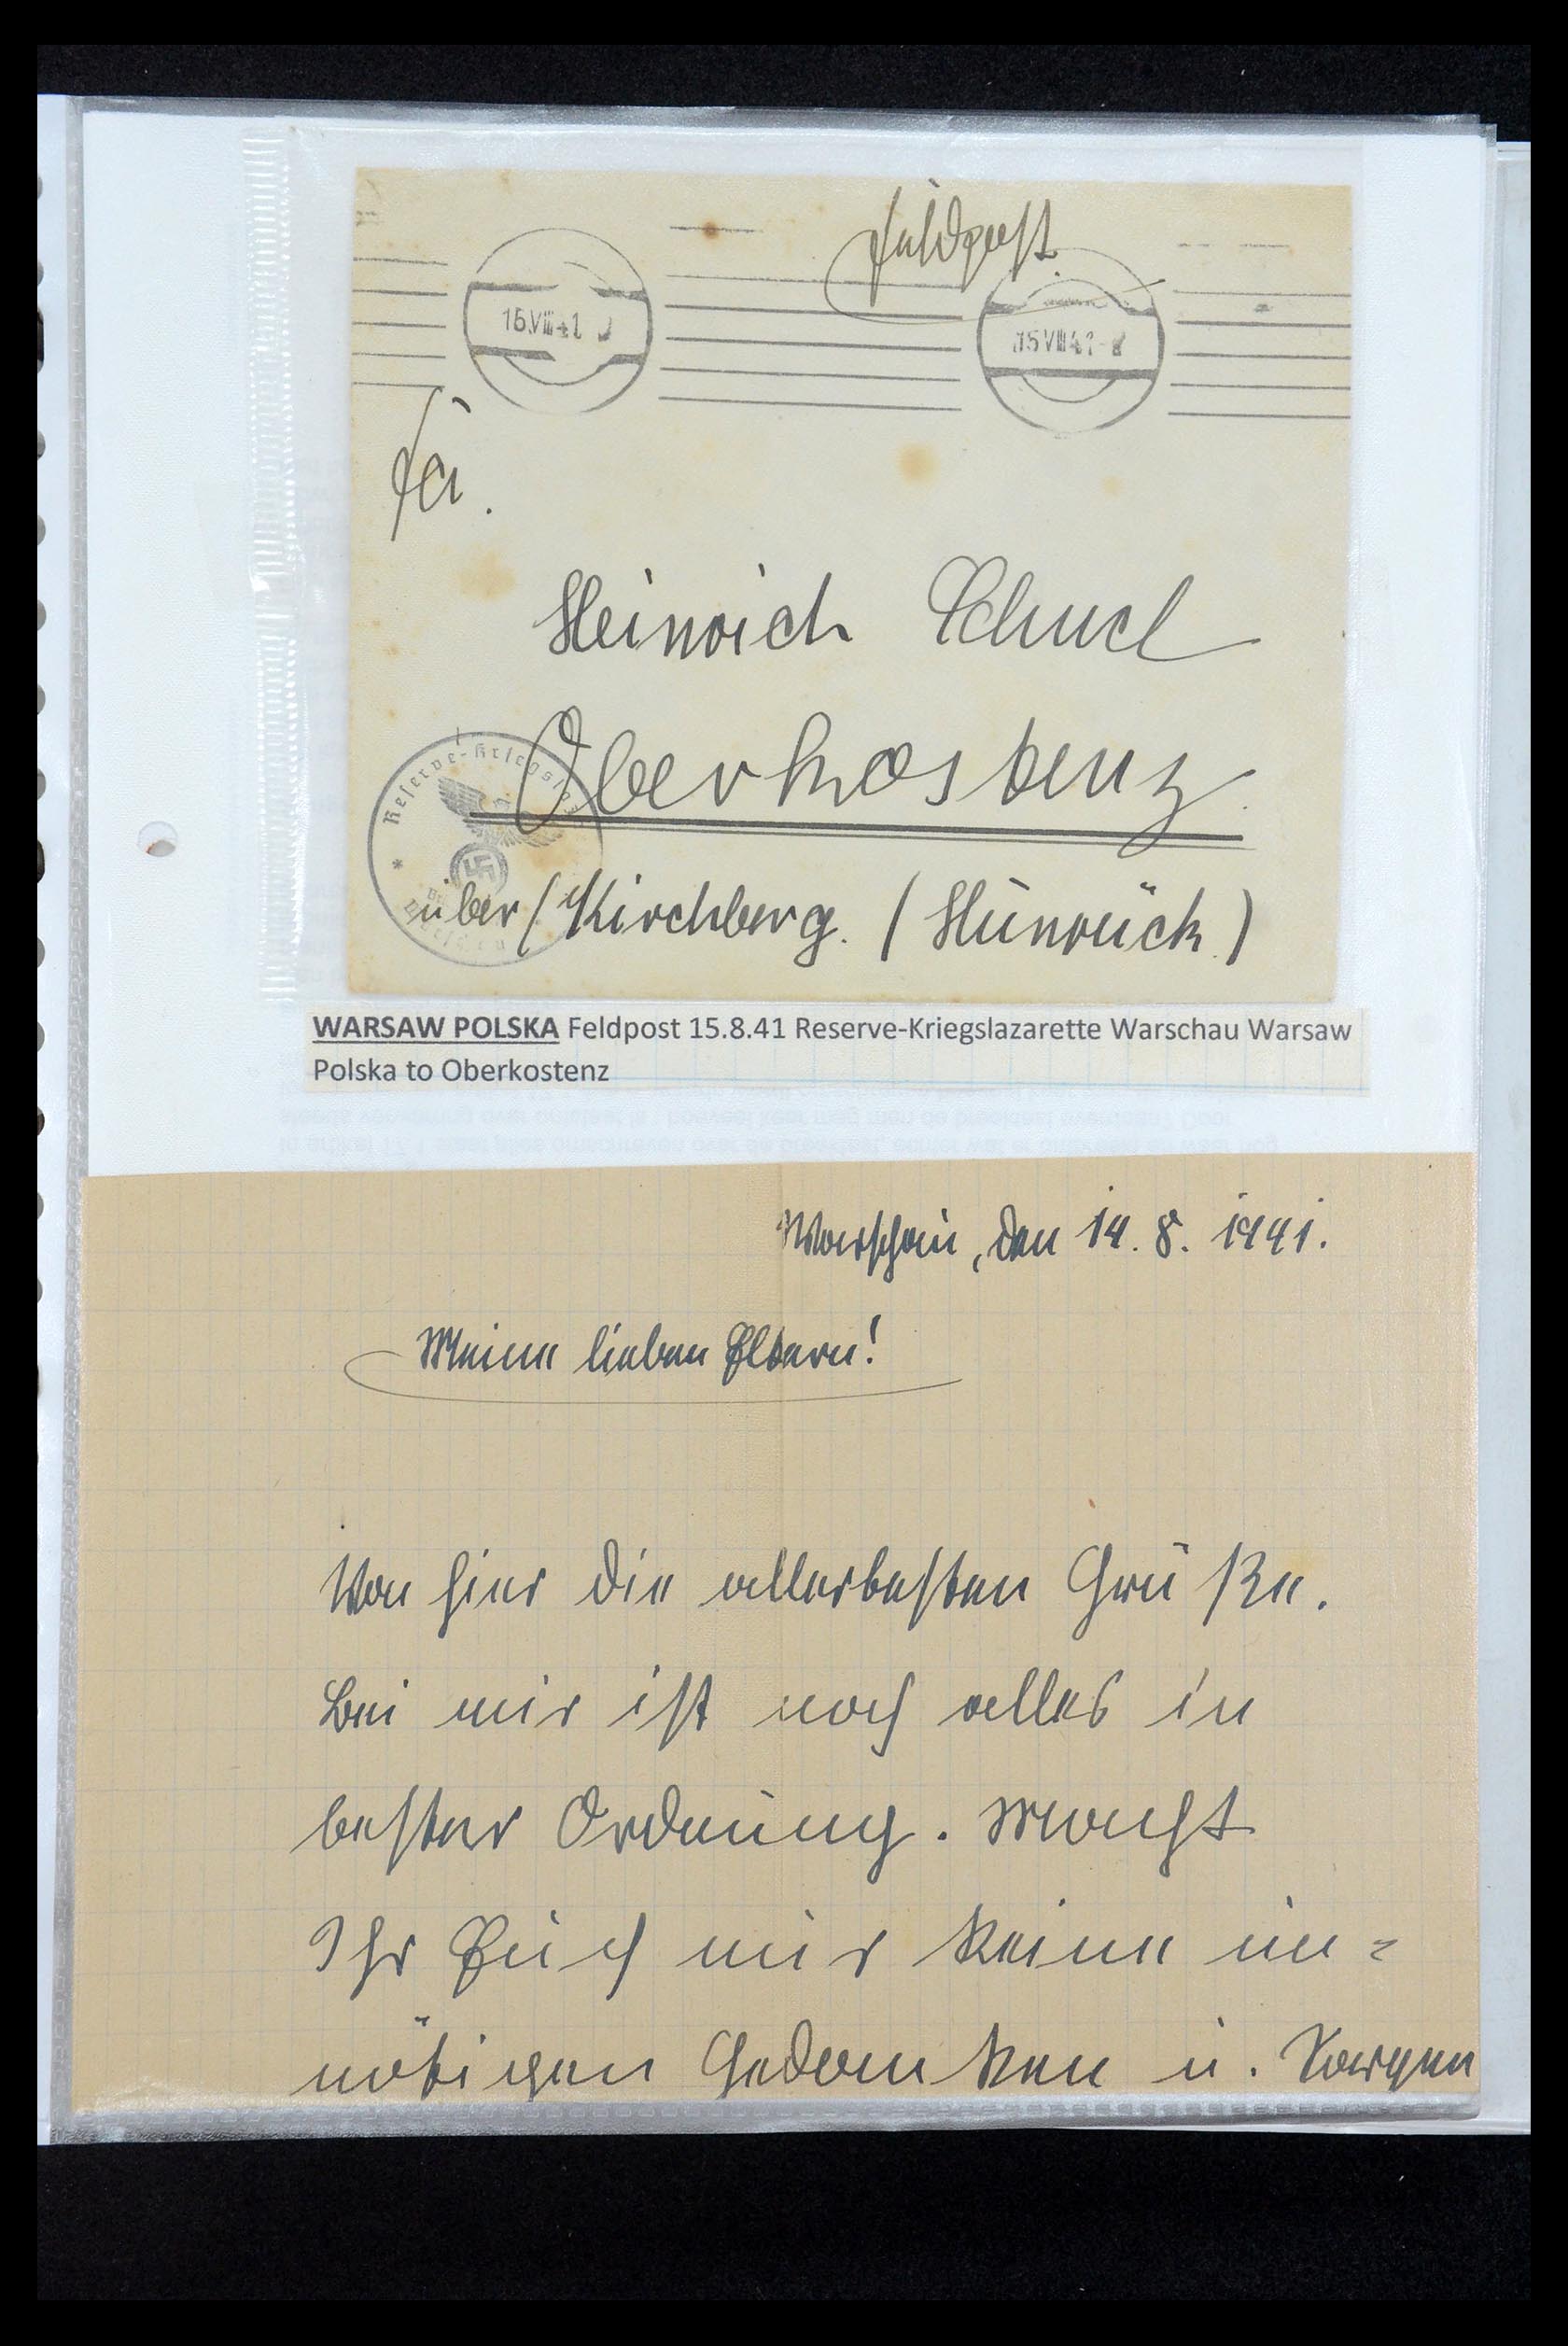 Feldpost
15.VIII.41
15.VIII.41-8
Fa.
Heinrich
Oberkostenz
Reserve-Kriegslaz
über / Kirchberg. (Hünrück.)
WARSAW POLSKA Feldpost 15.8.41 Reserve-Kriegslazarette Warschau Warsaw
Polska to Oberkostenz
Warschau, den 14. 8. 1941.
Meine lieben Eltern!
Von hier die allerbesten Grüße.
Bei mir ist noch alles in
bester Ordnung. Macht
Ihr Euch nur keine un=
nötigen Gedanken u. Sorgen